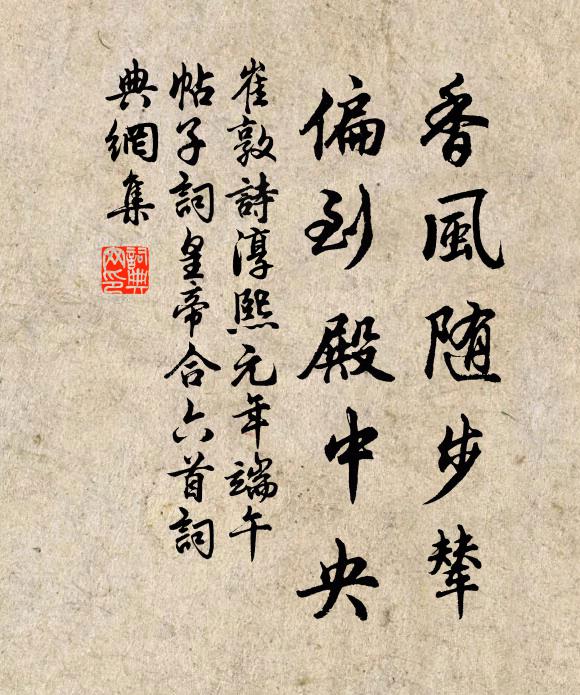 香風随步輦
偏到殿中央
崔敦詩淳熙元年端午
帖子詞皇帝合六首詞
典網集
詞典
网印